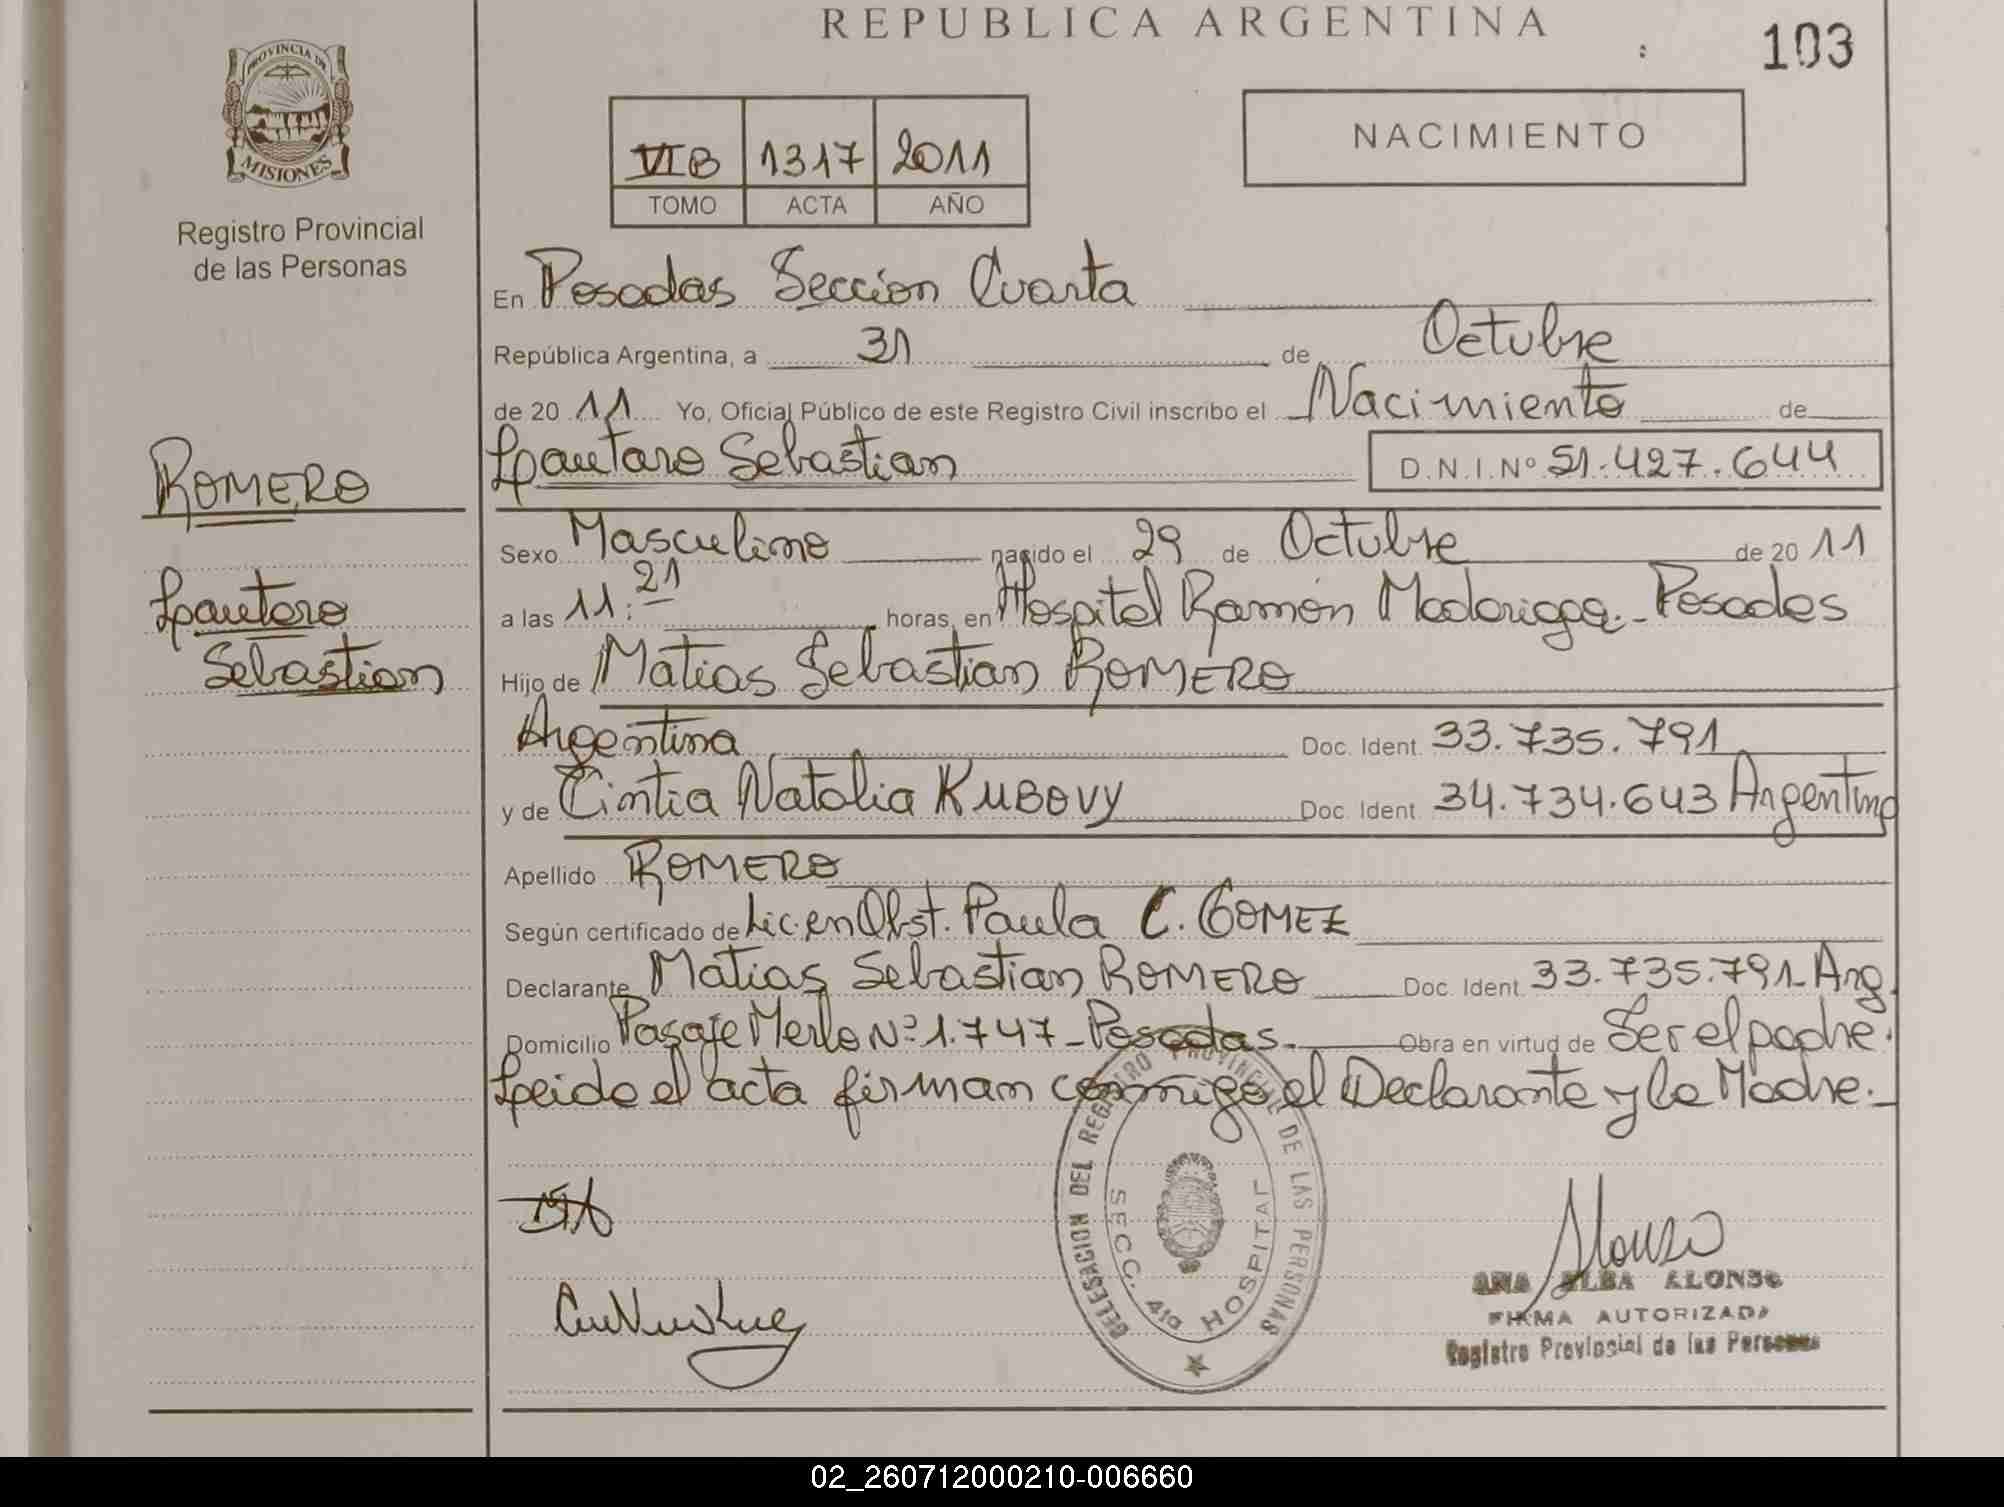 REPUBLICA ARGENTINA
103
PROVINCIA DE
MISIONES
Registro Provincial
de las Personas
VI B 1317 2011
TOMO ACTA AÑO
NACIMIENTO
En Posadas Sección Cuarta
República Argentina, a 31 de Octubre
de 20 11 Yo, Oficial Público de este Registro Civil inscribo el Nacimiento de
Lautaro Sebastian D.N.I.Nº 51.427.644
ROMERO
Lautaro
Sebastian
Sexo Masculino nacido el 29 de Octubre de 20 11
a las 11:21 horas, en Hospital Ramón Madariaga.- Posadas
Hijo de Matias Sebastian ROMERO
Argentina Doc. Ident. 33.735.791
y de Cintia Natalia KUBOVY Doc. Ident. 34.734.643 Argentina
Apellido ROMERO
Según certificado de Lic. en Obst. Paula C. GOMEZ
Declarante Matias Sebastian ROMERO Doc. Ident. 33.735.791- Arg.
Domicilio Pasaje Merlo Nº 1.747 - Posadas.- Obra en virtud de Ser el padre.
Leida el acta firman conmigo el Declarante y la Madre.-
DELEGACION DEL REGISTRO PROVINCIAL DE LAS PERSONAS
SECC. 4ta HOSPITAL
Alonso
ANA ELBA ALONSO
FIRMA AUTORIZADA
Registro Provincial de las Personas
02_260712000210-006660